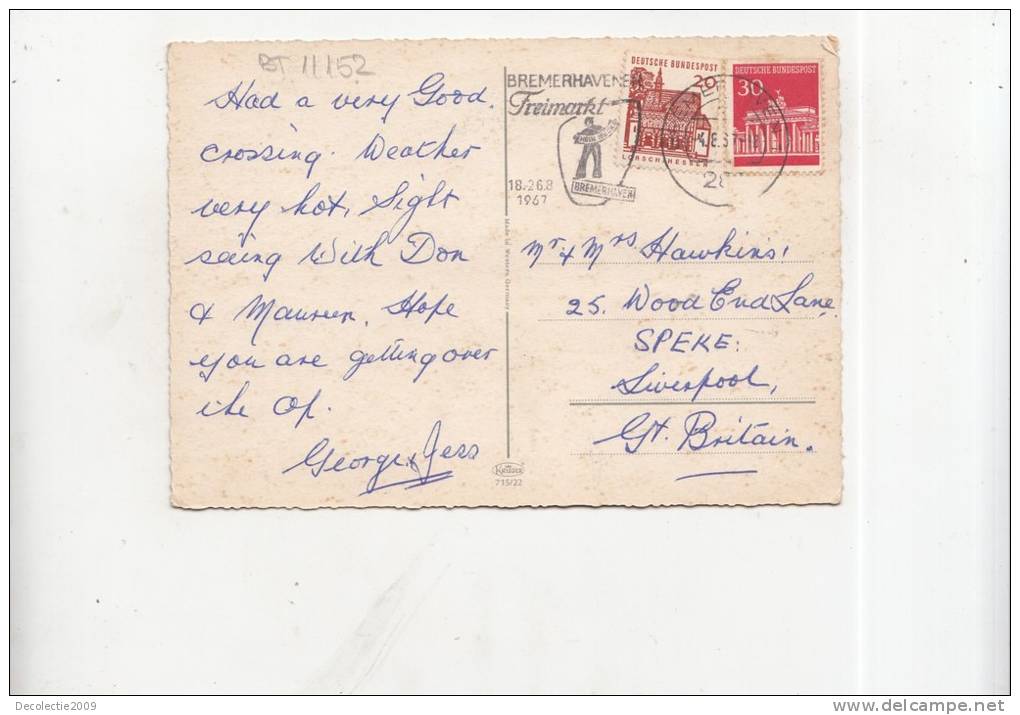 BT 11152
Had a very Good.
crossing. Weather
very hot, Sight
seeing With Don
& Maureen. Hope
you are getting over
the Op.
George & Jess
Made in Western Germany
Krüger
715/22
BREMERHAVENER
Freimarkt
18.-26.8
1967
BREMERHAVEN
DEUTSCHE BUNDESPOST
20
LORSCH/HESSEN
DEUTSCHE BUNDESPOST
30
Mr & Mrs. Hawkins
25. Wood End Lane
SPEKE:
Liverpool,
Gt. Britain.
Decolectie2009
www.delcampe.net